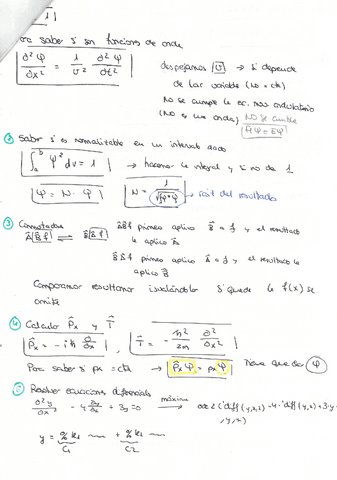 saber si son funcions de onda
∂²φ/∂x² = 1/v² ∂²φ/∂t²
despejamos v → si depende
de las variables (no = cte)
No se cumple la ec. mov. ondulatorio
(No es una onda) No se cumple
Ĥφ = Eφ
② Saber si es normalizable en un intervalo dado
∫ₐᵇ φ² dv = 1 → hacemos la integral y si no da 1
φ = N · φ
N = 1/√∫φ*φ → del resultado
③ Conmutador
ÂB̂f primero aplico B̂ = f y el resultado
le aplico Â
Â[B̂f] ⇌ B̂[Âf]
B̂Âf primero aplico Â = f y el resultado
le aplico B̂
Comparamos resultados igualándolos si queda la f(x) se
omite
④ Calcular P̂x y T̂
P̂x = -iħ ∂/∂x , T̂ = - ħ²/2m ∂²/∂x²
Para saber si px = cte → P̂xφ = pxφ que ser φ
⑤ Resolver equacions diferencials
∂²y/∂x² - 4 ∂y/∂x + 3y = 0 máxima → ode2('diff(y,x,2)-4·'diff(y,x)+3·y
,y,x)
y = %k1 + %k2
C1 C2